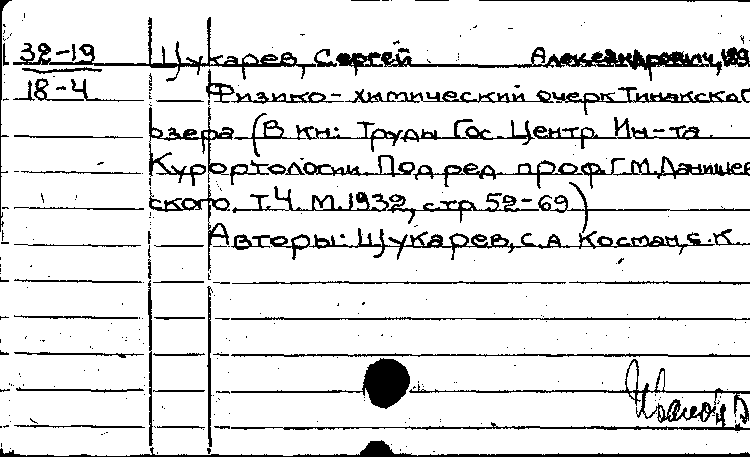 32-19 Щукарев, Сергей Александрович, 189
18-4 Физико-химический очерк Тинакског
озера (В кн: Труды Гос. Центр. Ин-та
Курортологии. Под ред. проф. Г.М. Данишев
ского. Т.4. М. 1932, стр 52-69)
Авторы: Щукарев, С.А. Косман, С.К.
Иванов